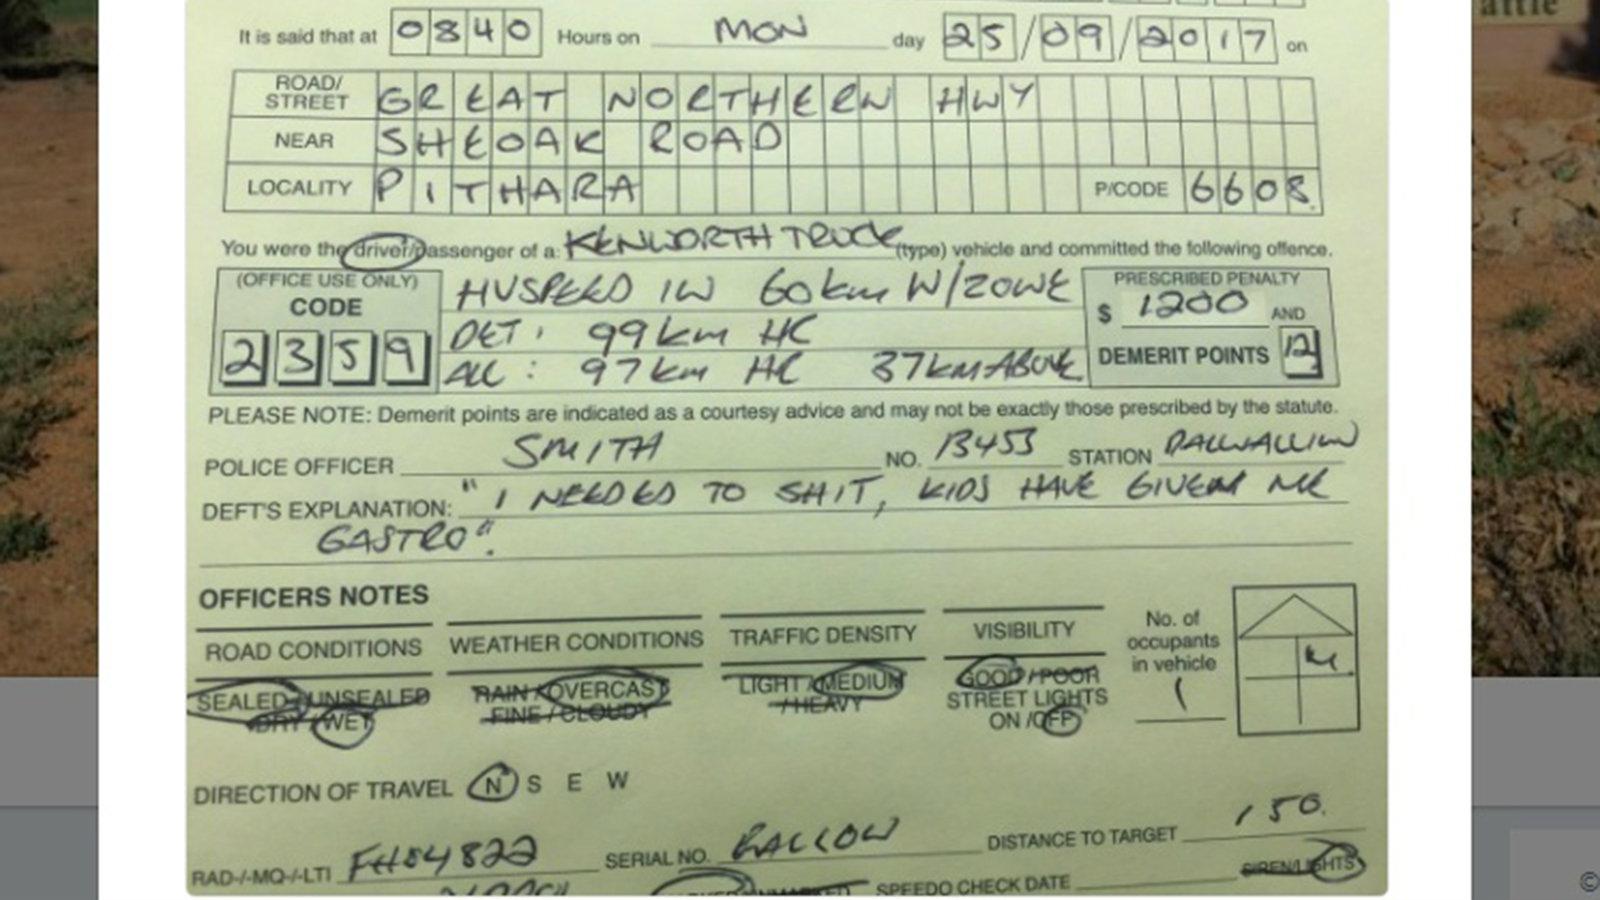 attle
It is said that at 0840 Hours on MON day 25/09/2017 on
ROAD/STREET GREAT NORTHERN HWY
NEAR SHEOAK ROAD
LOCALITY PITHARA P/CODE 6608
You were the driver/passenger of a: KENWORTH TRUCK (type) vehicle and committed the following offence.
(OFFICE USE ONLY) CODE 2359
HVSPEED IN 60km W/ZONE
DET: 99km HC
ALL: 97km HC 37km ABOVE
PRESCRIBED PENALTY
$ 1200 AND
DEMERIT POINTS 12
PLEASE NOTE: Demerit points are indicated as a courtesy advice and may not be exactly those prescribed by the statute.
POLICE OFFICER SMITH NO. 13453 STATION DALWALLINU
DEFT'S EXPLANATION: "I NEEDED TO SHIT, KIDS HAVE GIVEN ME
GASTRO".
OFFICERS NOTES
ROAD CONDITIONS WEATHER CONDITIONS TRAFFIC DENSITY VISIBILITY No. of occupants in vehicle
SEALED / UNSEALED RAIN / OVERCAST LIGHT / MEDIUM GOOD / POOR 1 M
DRY / WET FINE / CLOUDY / HEAVY STREET LIGHTS
ON / OFF
DIRECTION OF TRAVEL N S E W
RAD-/-MQ-/-LTI SERIAL NO. DISTANCE TO TARGET 150.
SPEEDO CHECK DATE SIREN/LIGHTS
©